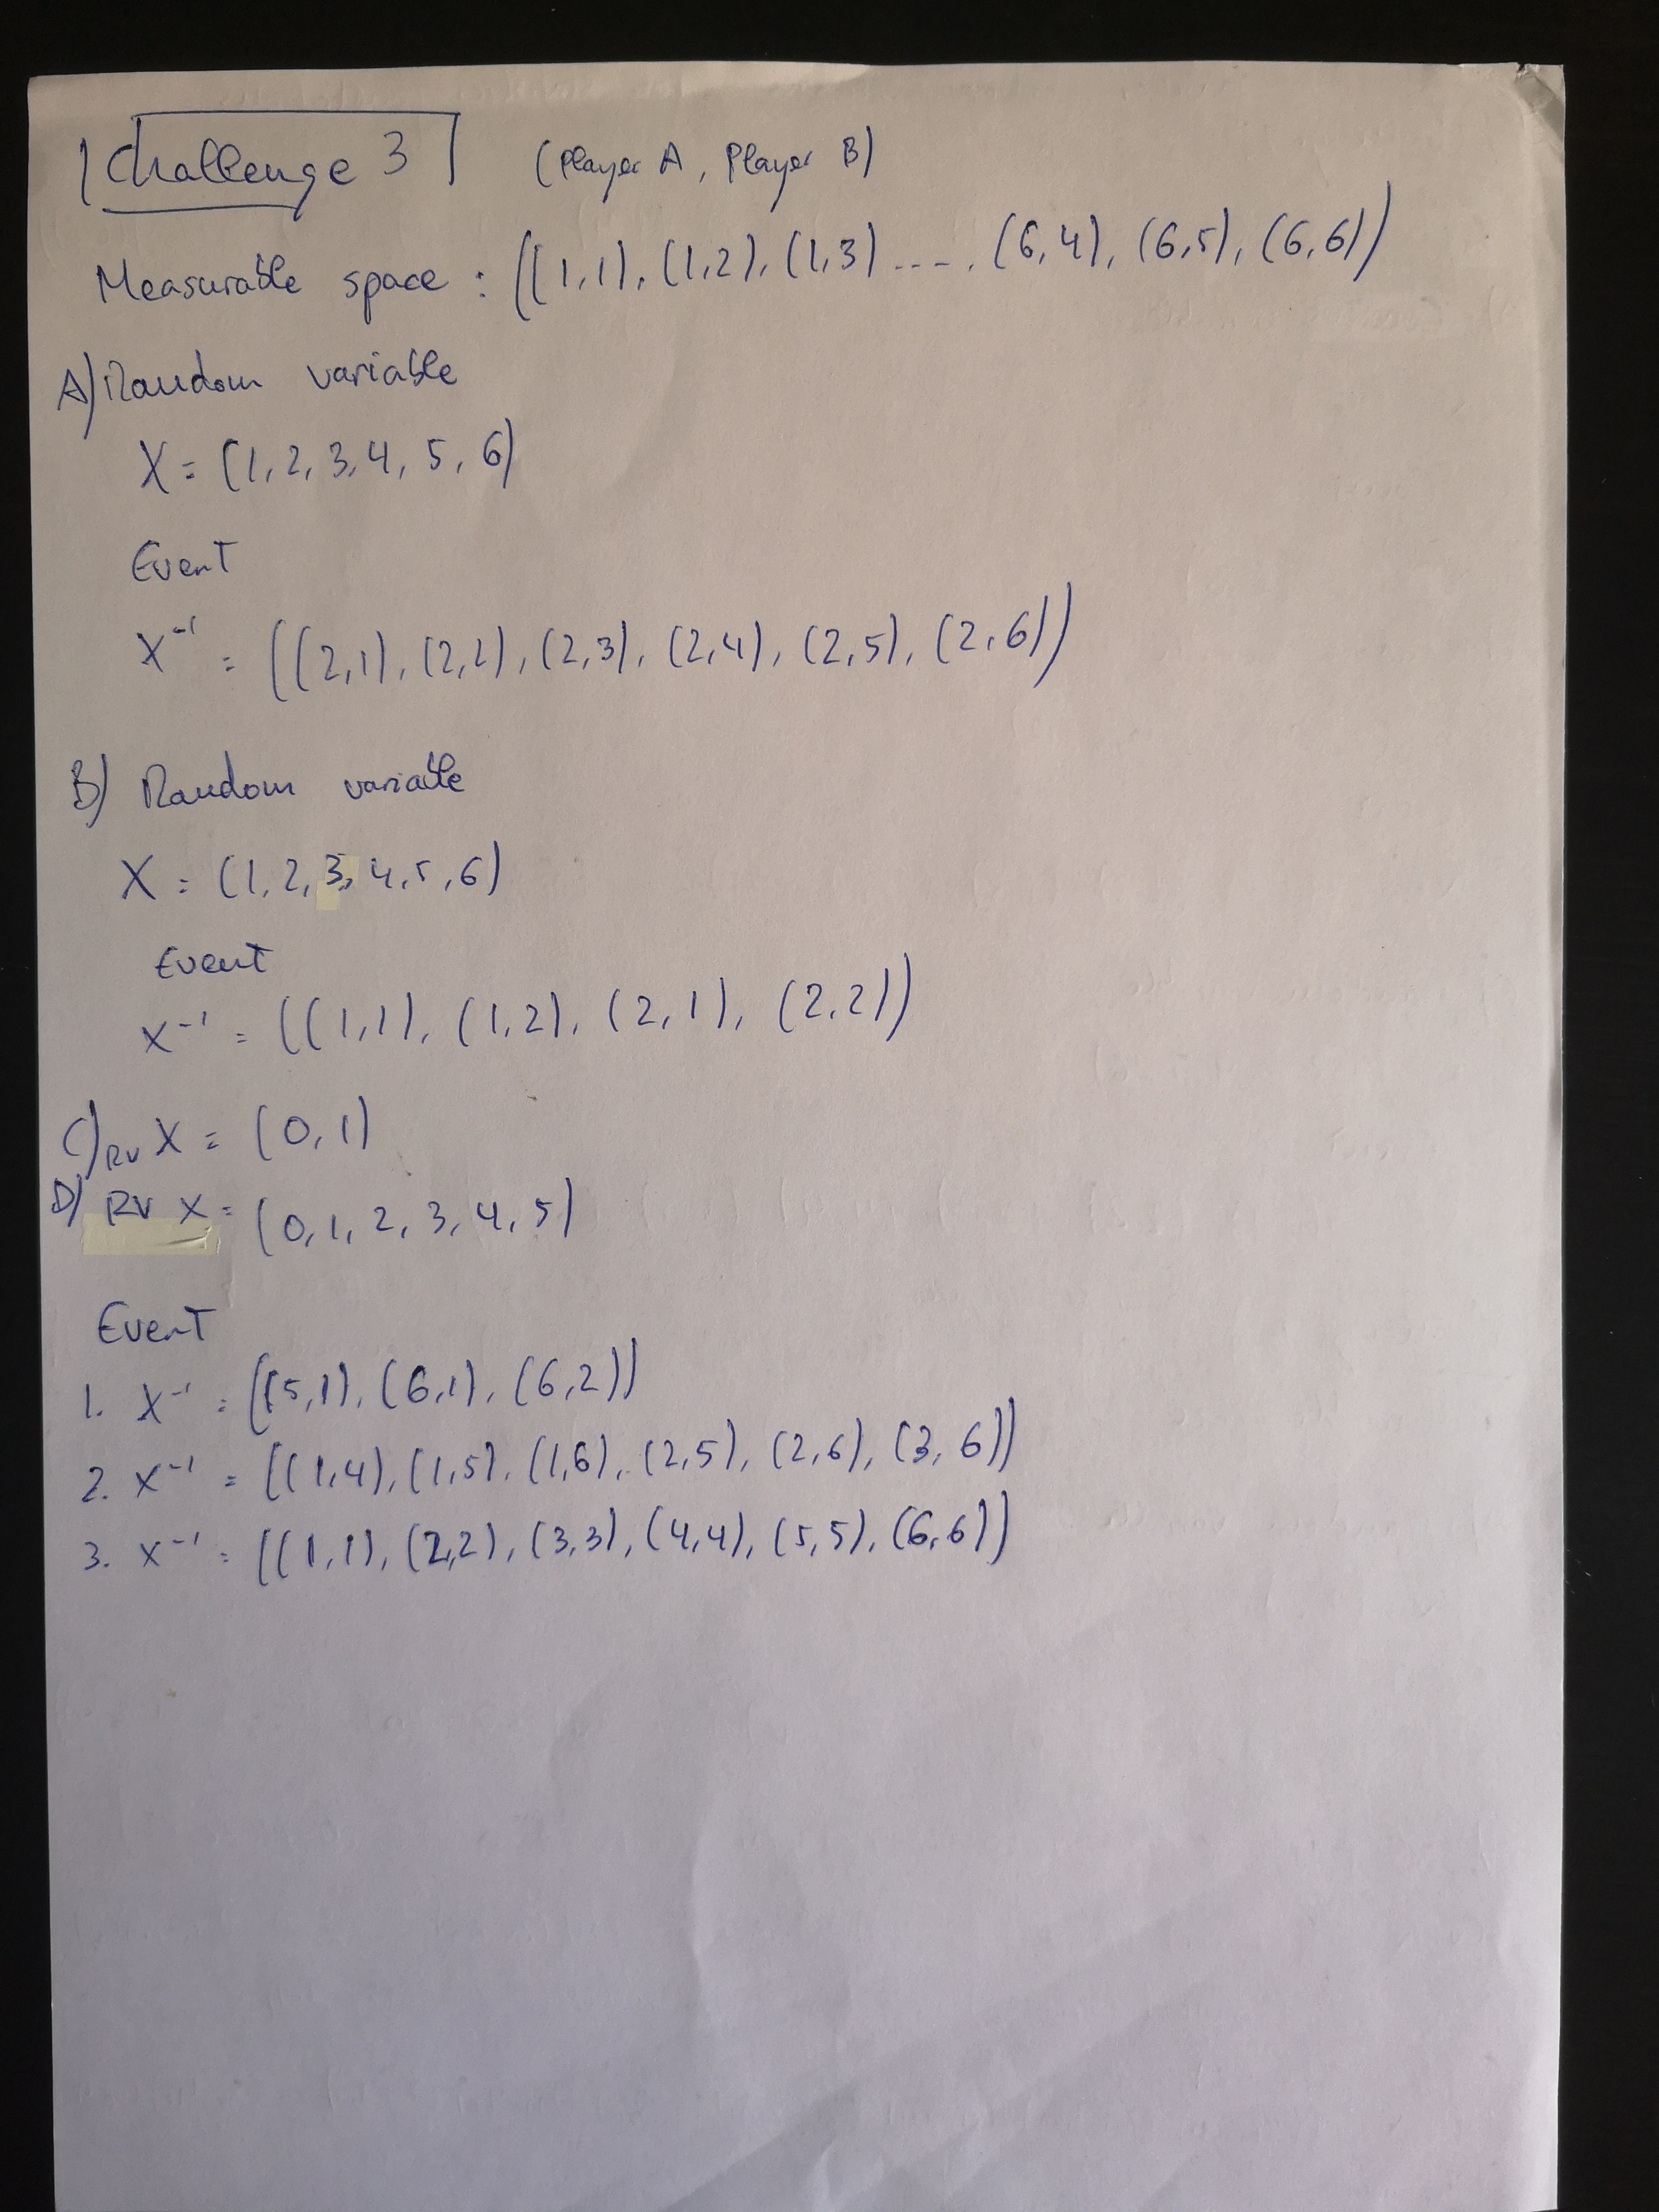 Challenge 3 (Player A, Player B)
Measurable space : ((1,1), (1,2), (1,3) ---- , (6,4), (6,5), (6,6))
A) Random variable
X = (1, 2, 3, 4, 5, 6)
Event
X⁻¹ = ((2,1), (2,2), (2,3), (2,4), (2,5), (2,6))
B) Random variable
X = (1, 2, 3, 4, 5, 6)
Event
X⁻¹ = ((1,1), (1,2), (2,1), (2,2))
C) RV X = (0, 1)
D) RV X = (0, 1, 2, 3, 4, 5)
Event
1. X⁻¹ = ((5,1), (6,1), (6,2))
2. X⁻¹ = ((1,4), (1,5), (1,6), (2,5), (2,6), (3,6))
3. X⁻¹ = ((1,1), (2,2), (3,3), (4,4), (5,5), (6,6))